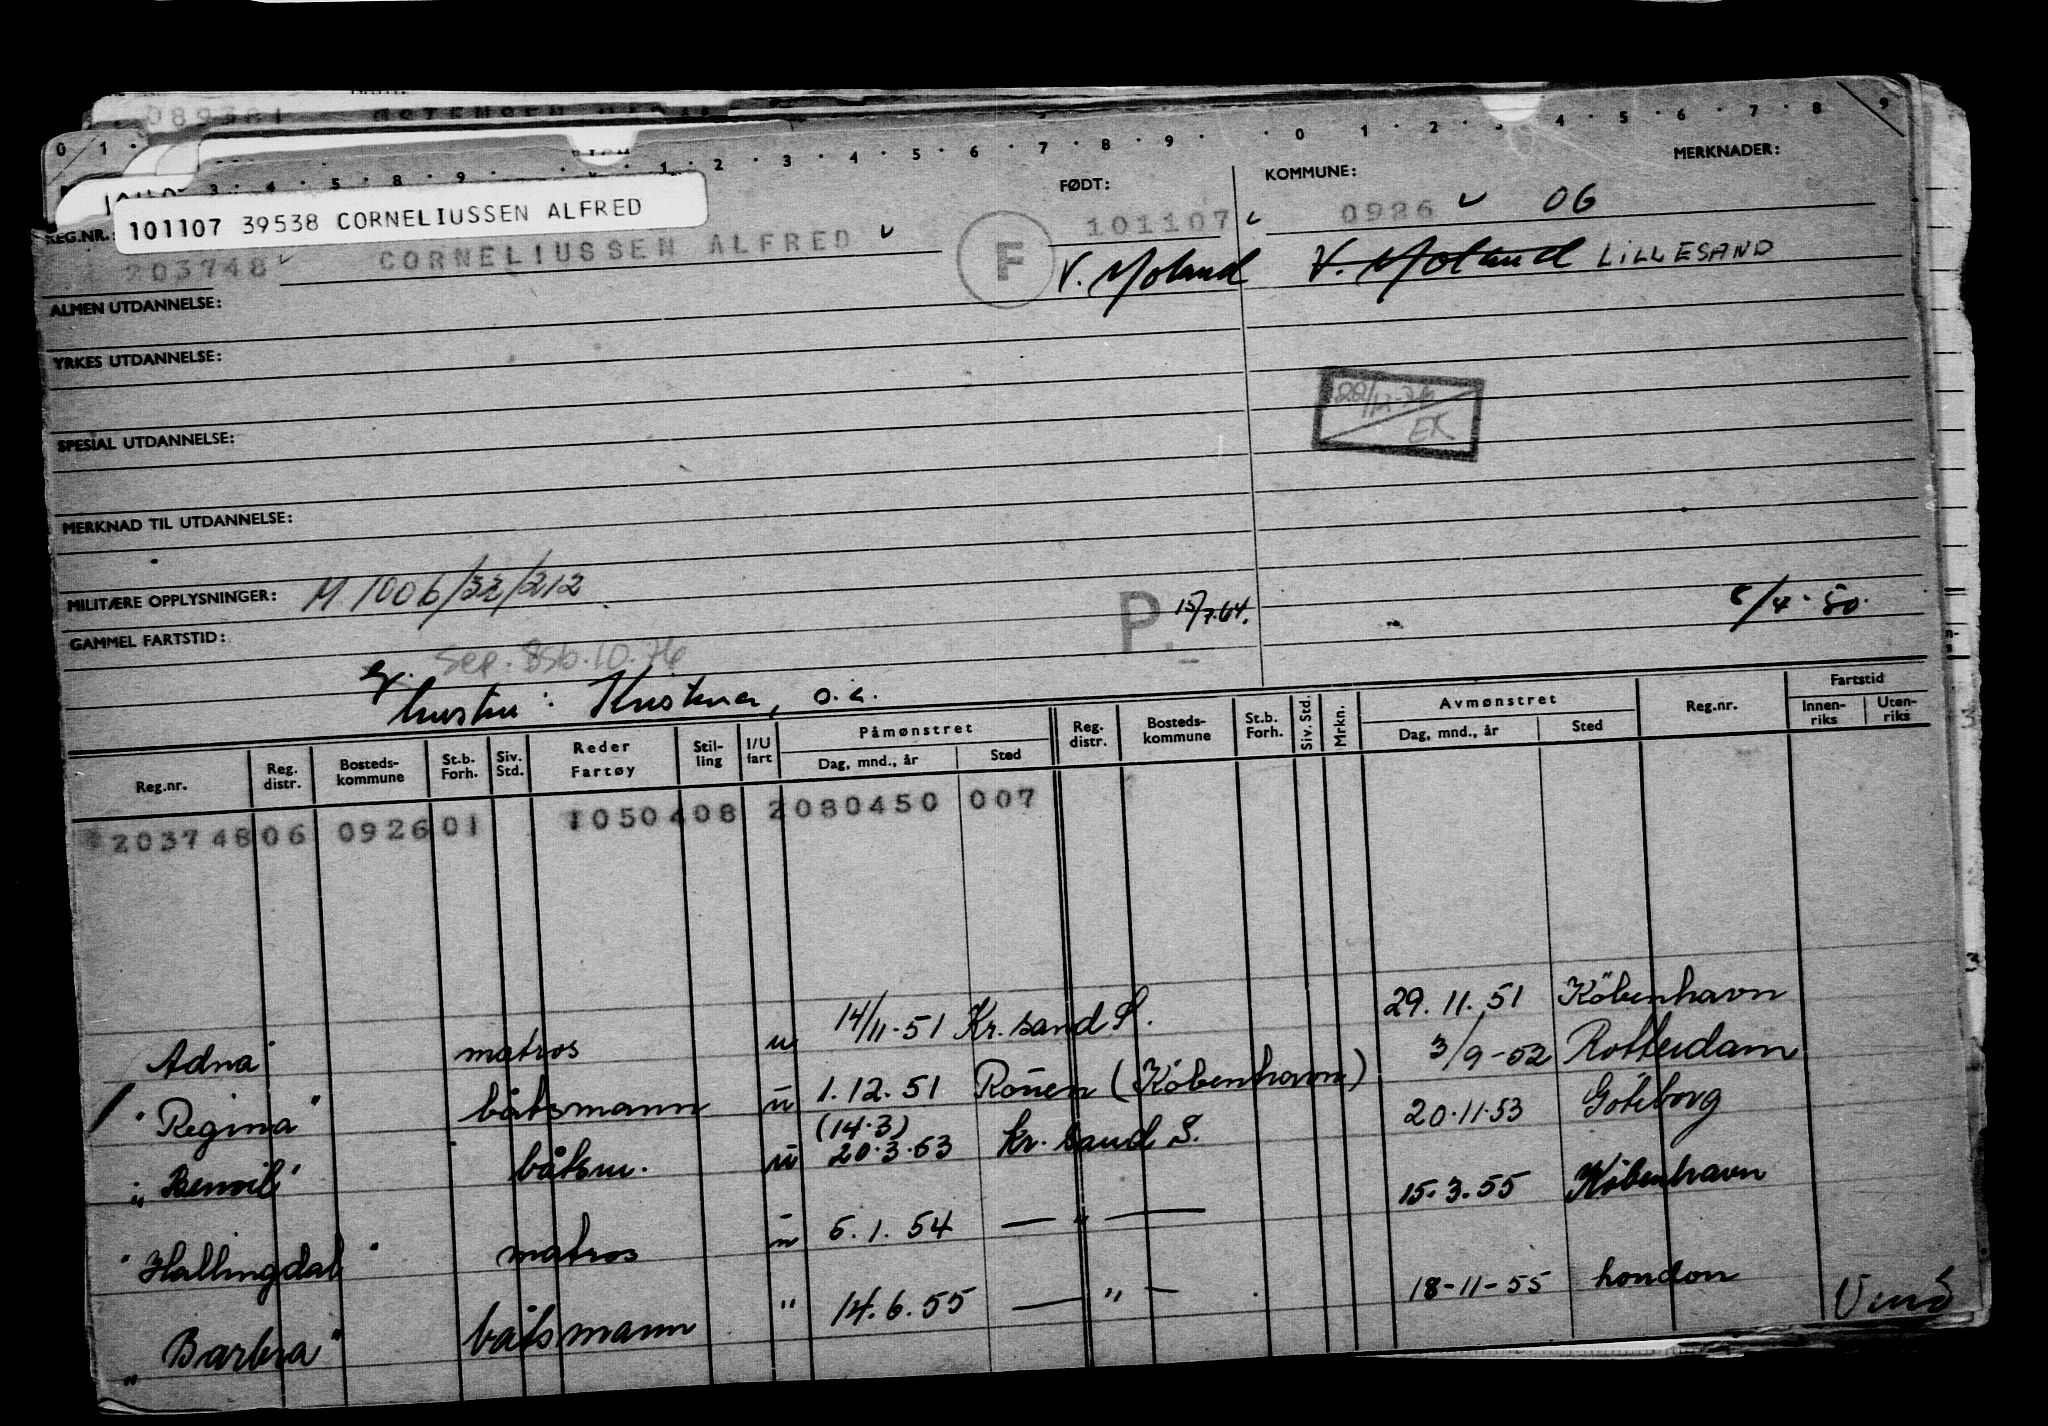 089381 ØSTENSEN
0 1 2 3 4 5 6 7 8 9 0 1 2 3 4 5 6 7 8 9
FØDT: KOMMUNE: MERKNADER:
101107 39538 CORNELIUSSEN ALFRED
REG.NR.: 203748 CORNELIUSSEN ALFRED F 101107 0926 06
V. Moland V. Moland LILLESAND
ALMEN UTDANNELSE:
YRKES UTDANNELSE:
SPESIAL UTDANNELSE:
EK
MERKNAD TIL UTDANNELSE:
MILITÆRE OPPLYSNINGER: M 1006/32/212
P. 15/7.64.
/4-50.
GAMMEL FARTSTID:
hustru: Kristina, s.a.
Reg.nr. Reg. distr. Bosteds-kommune St.b. Forh. Siv. Std. Reder Fartøy Stil-ling I/U fart Påmønstret Dag, mnd., år Sted Reg. distr. Bosteds-kommune St.b. Forh. Siv. Std. Mrkn. Avmønstret Dag, mnd., år Sted Reg.nr. Fartstid Innen-riks Uten-riks
203748 06 0926 01 1050408 2080450 007
Adna" matros u 14/11-51 Kr.sand S. 29.11.51 København
"Regina" båtsmann u 1.12.51 Rouen (København) 3/9-52 Rotterdam
"Benvil" båtsm. u (14.3) 20.3.53 Kr.sand S. 20.11.53 Göteborg
"Hallingdal" matros u 6.1.54 — " — 15.3.55 København
"Barbra" båtsmann " 14.6.55 — " — 18-11-55 London
Vend